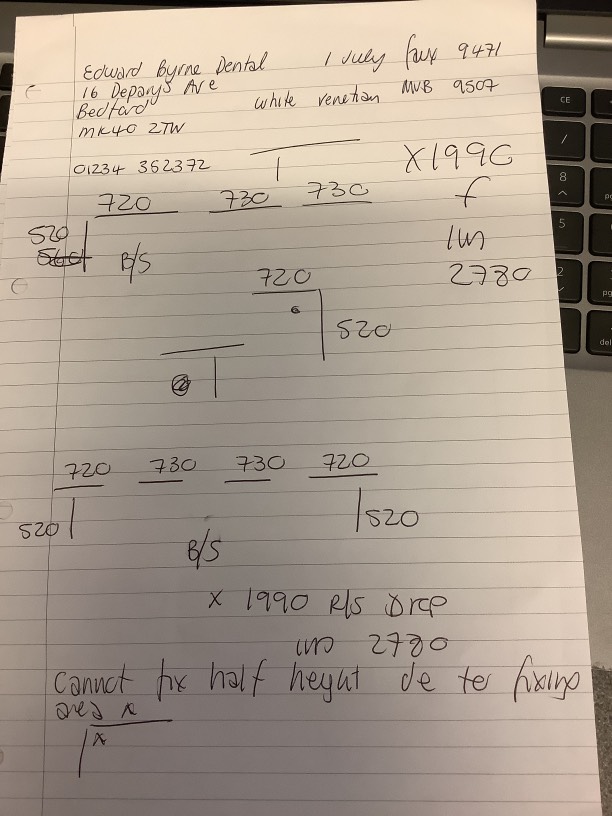 Edward Byrne Dental 1 July faux 9471
16 Deparys Ave
Bedford white venetian MVB 9507
MK40 2TW
01234 352372 X1990
720 730 730 f
520 B/S 1w
720 2780
520
720 730 730 720
520 520
B/S
x 1990 R/S Drop
2780
Cannot fix half height fixing
area x
x